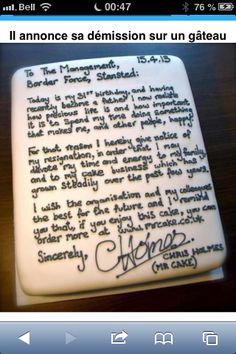 Bell 00:47 76 %
Il annonce sa démission sur un gâteau
15.4.13
To The Management,
Border Force, Stansted:
Today is my 31st birthday, and having
recently become a father I now realise
how precious life is and how important
it is to spend my time doing something
that makes me, and other people, happy.
For that reason I hereby give notice of
my resignation, in order that I may
devote my time and energy to my family,
and to my cake business which has
grown steadily over the past few years.
I wish the organisation and my colleagues
the best for the future and I remind
you that, if you enjoy this cake, you can
order more at www.mrcake.co.uk
Sincerely,
CHolmes
CHRIS HOLMES
(MR CAKE)